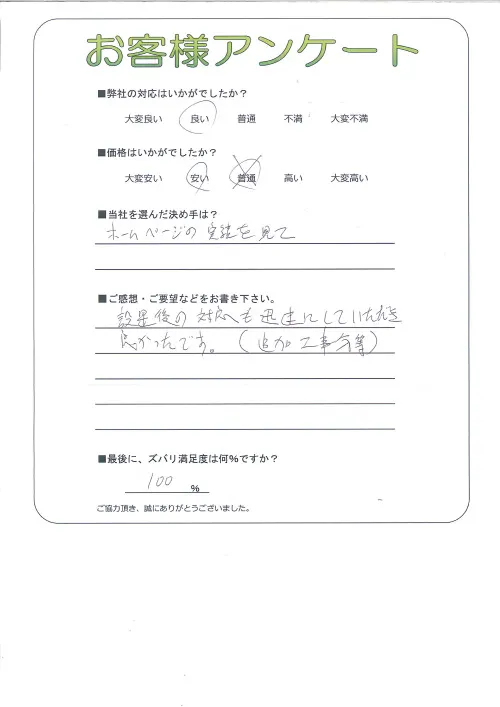 お客様アンケート
■弊社の対応はいかがでしたか？
大変良い 良い 普通 不満 大変不満
■価格はいかがでしたか？
大変安い 安い 普通 高い 大変高い
■当社を選んだ決め手は？
ホームページの実績を見て
■ご感想・ご要望などをお書き下さい。
設置後の対応も迅速にしていただき
良かったです。（追加工事分等）
■最後に、ズバリ満足度は何％ですか？
100 %
ご協力頂き、誠にありがとうございました。